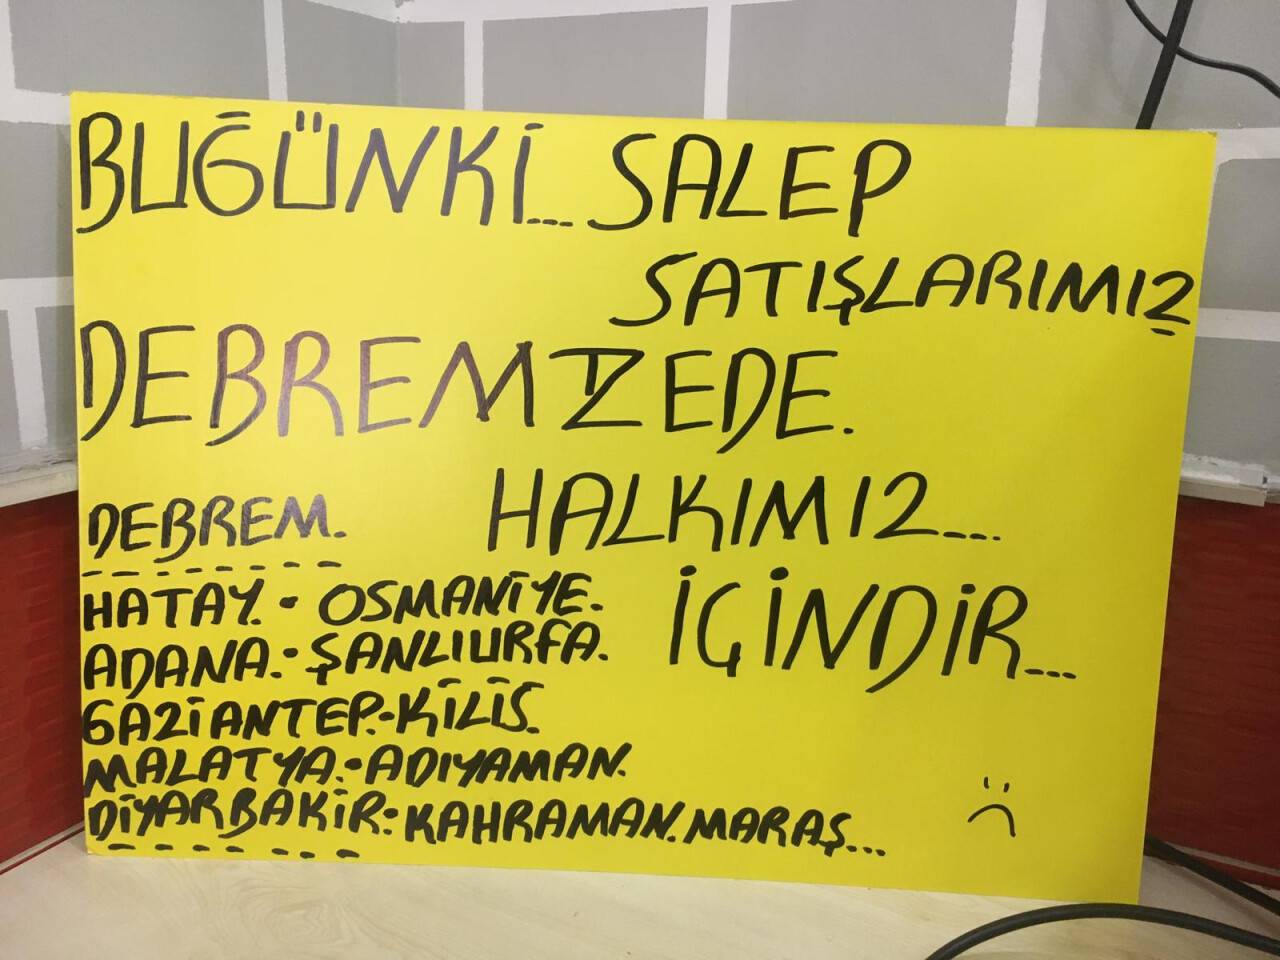 BUĞÜNKİ... SALEP
SATIŞLARIMIZ
DEBREMZEDE.
HALKIMIZ...
İÇİNDİR...
DEBREM.
HATAY.- OSMANİYE.
ADANA.- ŞANLIURFA.
GAZİANTEP.-KİLİS.
MALATYA.-ADIYAMAN.
DİYARBAKİR.-KAHRAMAN.MARAŞ...